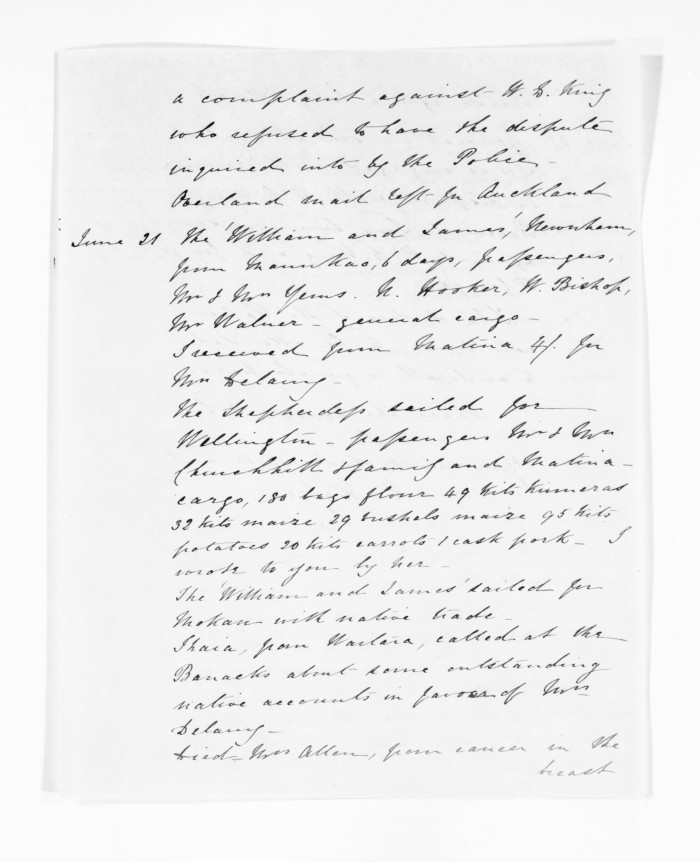 a complaint against H. S. King
who refused to have the dispute
inquired into by the Police -
Overland mail left for Auckland
June 21 The 'William and James', Newnham,
from Manukao, 6 days, passengers,
Mr & Mrs Yems. N. Hooker, W. Bishop,
Mr Walner - general cargo -
I received from Matina 4/. for
Mrs Delamy -
The Shepherdess sailed for
Wellington - passengers Mr & Mrs
Churchhill & family and Matina -
cargo, 180 bags flour 49 kits kumeras
32 kits maize 29 bushels maize 95 kits
potatoes 20 kits carrots 1 cask pork - I
wrote to you by her -
The 'William and James' sailed for
Mokau with native trade -
Ihaia, from Waitara, called at the
Barracks about some outstanding
native accounts in favor of Mrs
Delamy -
Died - Mrs Allen, from cancer in the
breast